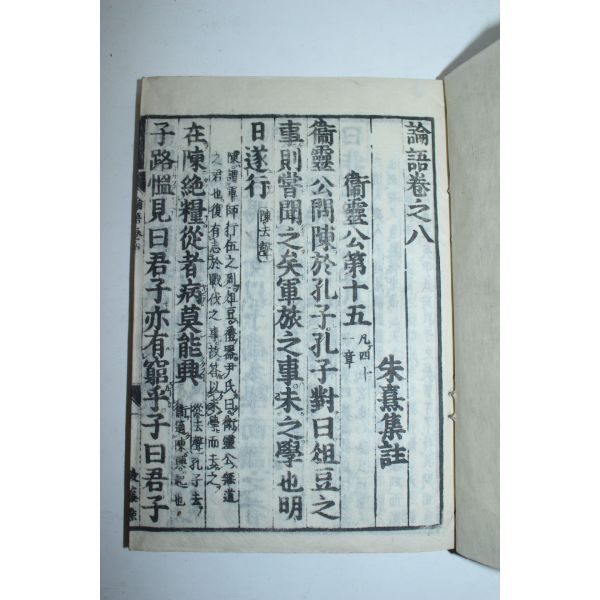 論語卷之八
朱熹集註
衞靈公第十五 凡四十
一章
衞靈公問陳於孔子孔子對曰俎豆之
事則嘗聞之矣軍旅之事未之學也明
日遂行 陳去聲
陳謂軍師行伍之列俎豆禮器尹氏曰衞靈公無道
之君也復有志於戰伐之事故答以未學而去之
在陳絶糧從者病莫能興 從去聲孔子去
衞適陳興起也
子路慍見曰君子亦有窮乎子曰君子